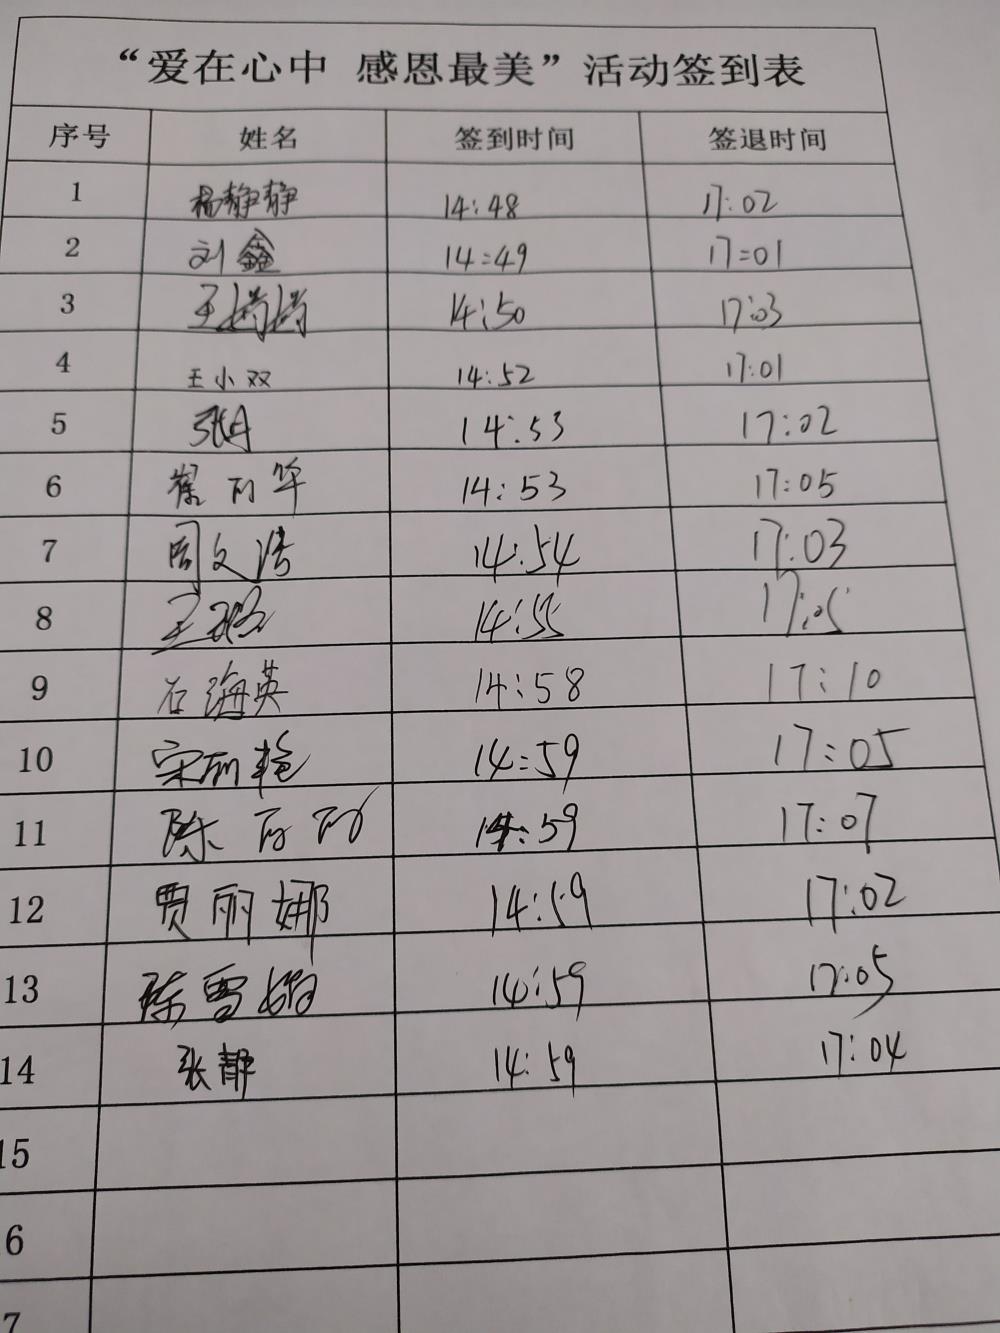 “爱在心中 感恩最美”活动签到表
序号 姓名 签到时间 签退时间
1 杨静静 14:48 17:02
2 刘鑫 14:49 17:01
3 王娟娟 14:50 17:03
4 王小双 14:52 17:01
5 张丹 14:53 17:02
6 14:53 17:05
7 周文涛 14:54 17:03
8 王 14:55 17:05
9 石海英 14:58 17:10
10 宋丽艳 14:59 17:05
11 陈丽丽 14:59 17:07
12 贾丽娜 14:59 17:02
13 陈雪娟 14:59 17:05
14 张静 14:59 17:04
15
6
7